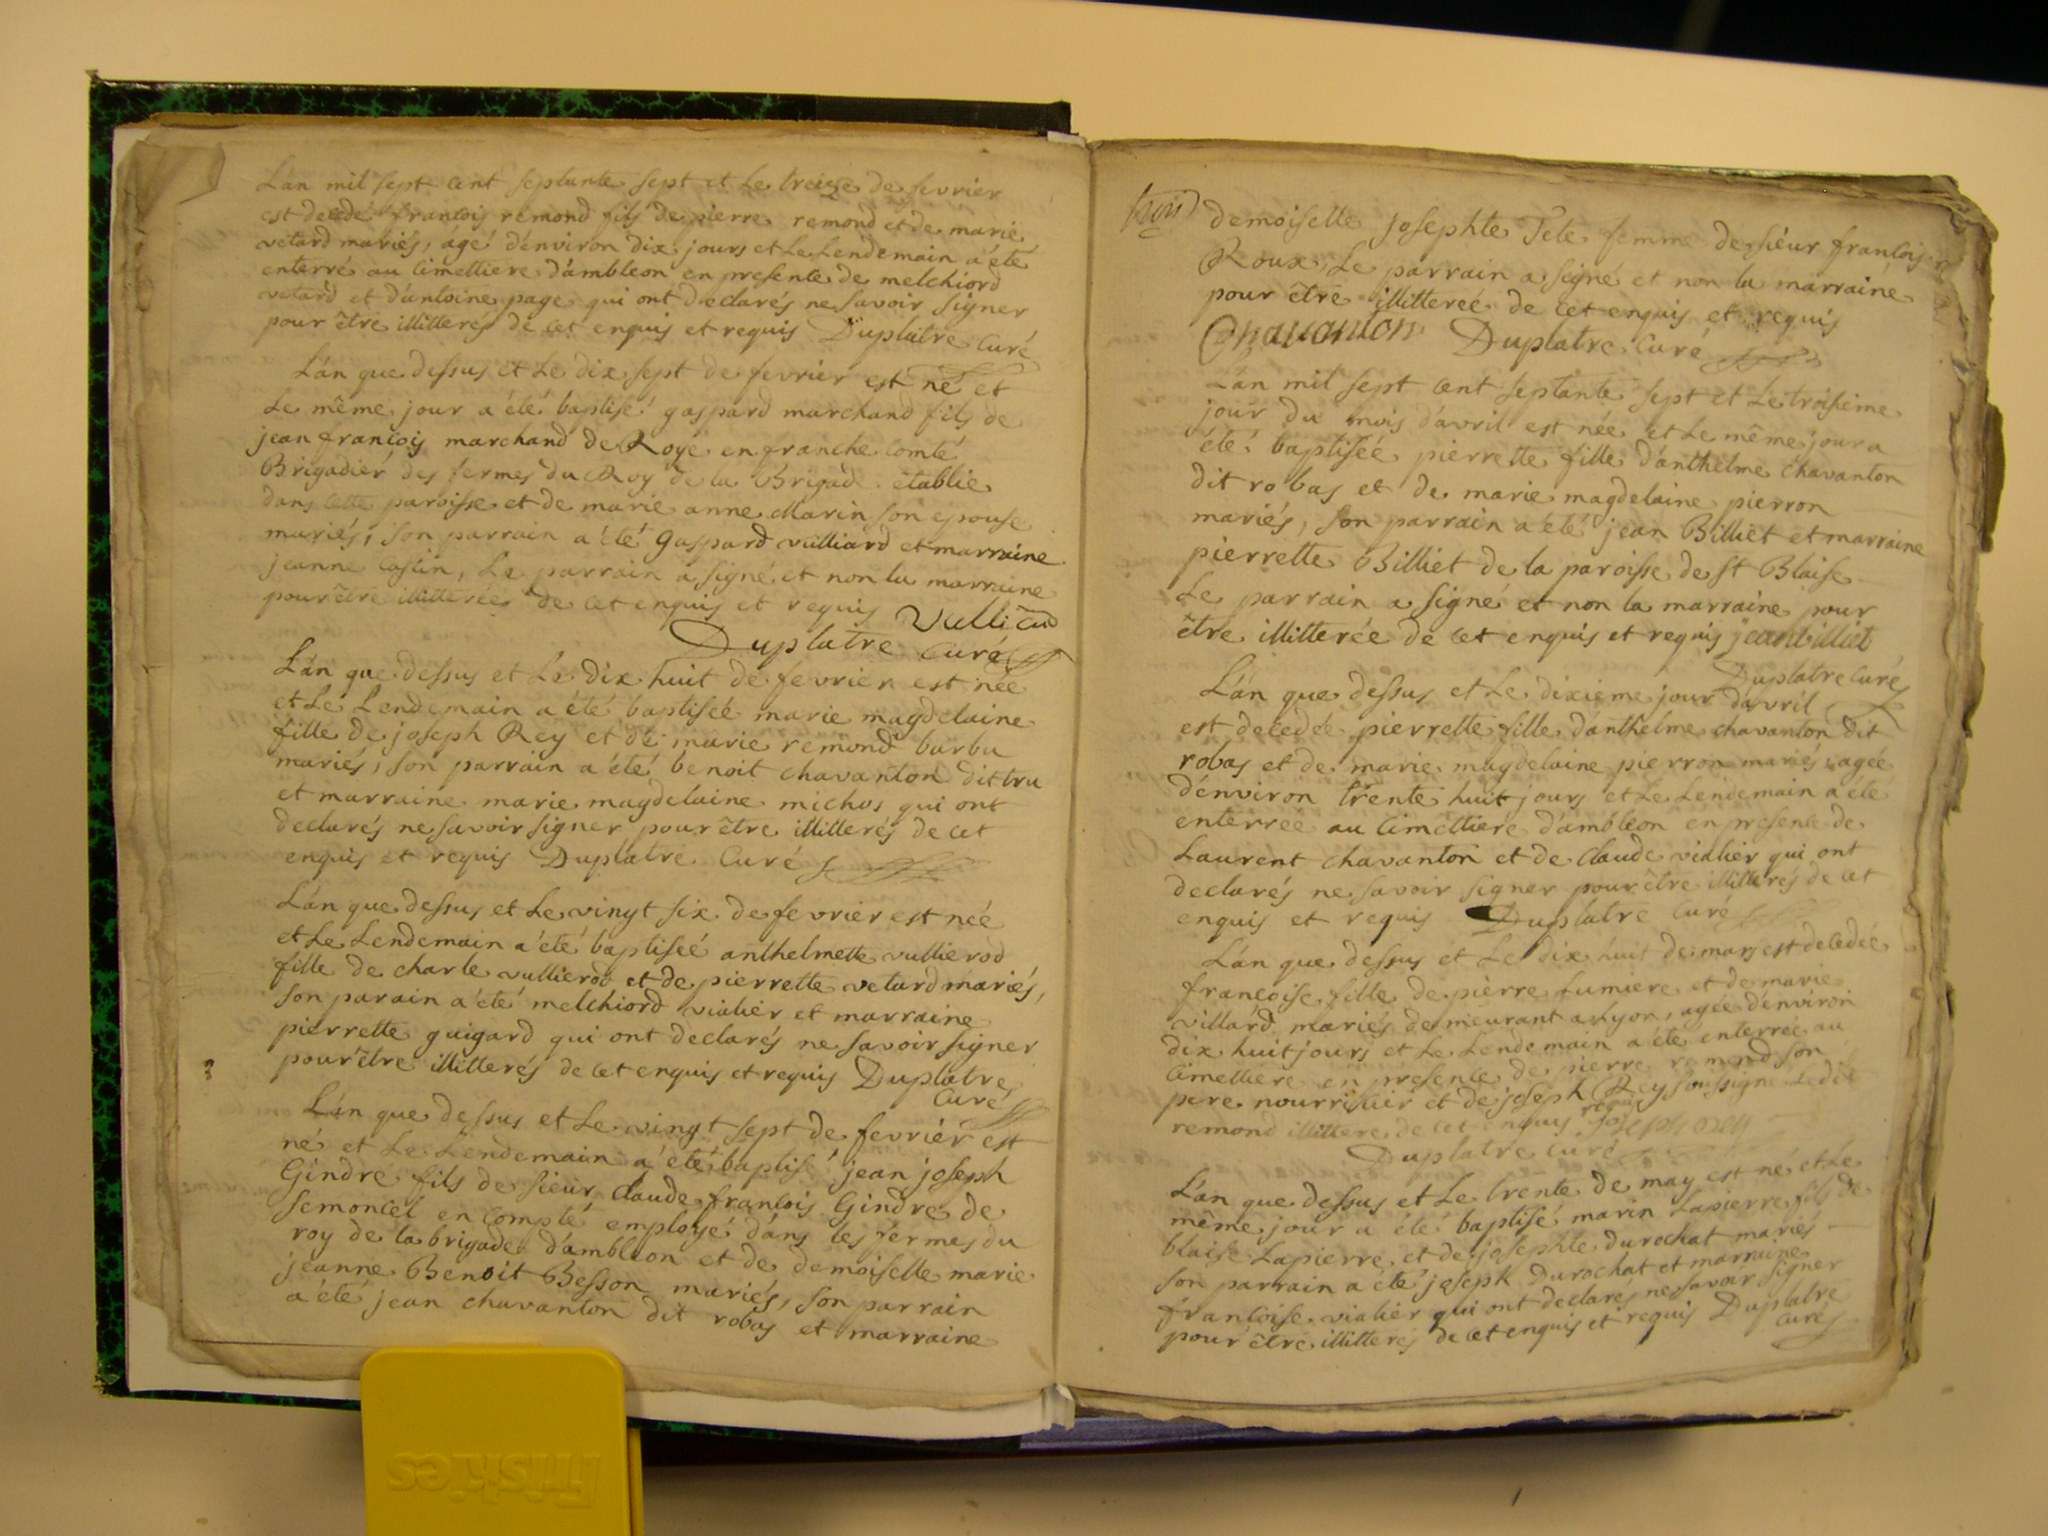 L'án mil sept cent septante sept et le treize de fevrier
est decedé francois remond fils de pierre remond et de marie
vetard mariés, ágé d'énviron dix jours et le Lendemain a été
enterré au cimettiere d'ambleon en presence de melchiord
vetard et d'antoine page qui ont declarés ne savoir signer
pour être illitterés de cet enquis et requis Duplatre Curé
L'án que dessus et le dix sept de fevrier est né et
le même jour a été baptisé gaspard marchand fils de
jean francois marchand de Roye en franche comté
Brigadier des fermes du Roy de la Brigade établie
dans cette paroisse et de marie anne Marin son epouse
mariés, son parrain a été gaspard vulliard et marraine
jeanne Caslin, Le parrain a signé et non la marraine
pour être illitterée de cet enquis et requis Vulliard
Duplatre Curé
L'án que dessus et le dix huit de fevrier est née
et Le Lendemain a été baptisée marie magdelaine
fille de joseph Rey et de marie remond barbu
mariés, son parrain a été benoit chavanton dit tru
et marraine marie magdelaine michos qui ont
declarés ne savoir signer pour être illitterés de cet
enquis et requis Duplatre Curé
L'án que dessus et Le vingt six de fevrier est née
et Le Lendemain a été baptisée anthelmette vullierod
fille de charle vullierod et de pierrette vetard mariés,
son parain a été melchiord vialier et marraine
pierrette guigard qui ont declarés ne savoir signer
pour être illitterés de cet enquis et requis Duplatre
Curé
L'án que dessus et Le vingt sept de fevrier est
né et Le Lendemain a été baptisé jean joseph
Gindre fils de sieur Claude francois Gindre de
semoncel en compté employé dans les férmes du
roy de la brigade d'ambleon et de demoiselle marie
jeanne Benoit Besson mariés, son parrain
a été jean chavanton dit robas et marraine
demoiselle josephte Tete femme de siéur francois
Roux, Le parrain a signé et non la marraine
pour être illitterée de cet enquis et requis
Chavanton Duplatre Curé
L'án mil sept cent septante sept et Le troisieme
jour du mois d'avril est née et Le même jour a
été baptisée pierrette fille d'anthelme chavanton
dit robas et de marie magdelaine pierron
mariés, son parrain a été jean Billiet et marraine
pierrette Billiet de la paroisse de St Blaise
Le parrain a signé et non la marraine pour
être illitterée de cet enquis et requis jean billiet
Duplatre Curé
L'án que dessus et Le dixieme jour d'avril
est decedée pierrette fille d'anthelme chavanton dit
robas et de marie magdelaine pierron mariés agée
d'énviron trente huit jours et Le Lendemain a été
enterrée au cimettiere d'ambleon en presence de
Laurent chavanton et de Claude vialier qui ont
declarés ne savoir signer pour être illitterés de cet
enquis et requis Duplatre Curé
L'án que dessus et Le dix huit de mars est decedée
francoise fille de pierre Lumiere et de marie
villard mariés demeurant a Lyon, agée d'énviron
dix huit jours et Le Lendemain a été enterrée au
cimettiere en presence de pierre remond son
pere nourrisier et de joseph Rey soussigne Ledit
remond illittere de cet enquis requis joseph rey
Duplatre Curé
L'án que dessus et Le trente de may est né et Le
même jour a été baptisé marin Lapierre fils de
blaise Lapierre et de josephte durochat mariés
son parrain a été joseph Durochat et marraine
francoise vialier qui ont declarés ne savoir signer
pour être illitterés de cet enquis et requis Duplatre
Curé
Friskies